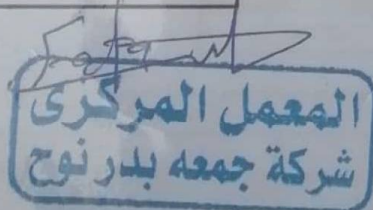 المعمل المركزى
شركة جمعه بدر نوح